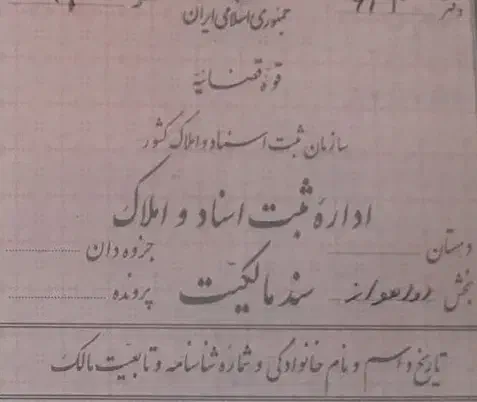 دفتر
جمهوری اسلامی ایران
قوه قضائیه
سازمان ثبت اسناد و املاک کشور
اداره ثبت اسناد و املاک
دهستان جزوه دان
بخش سند مالکیت پرونده
تاریخ و اسم و نام خانوادگی و شماره شناسنامه و تابعیت مالک